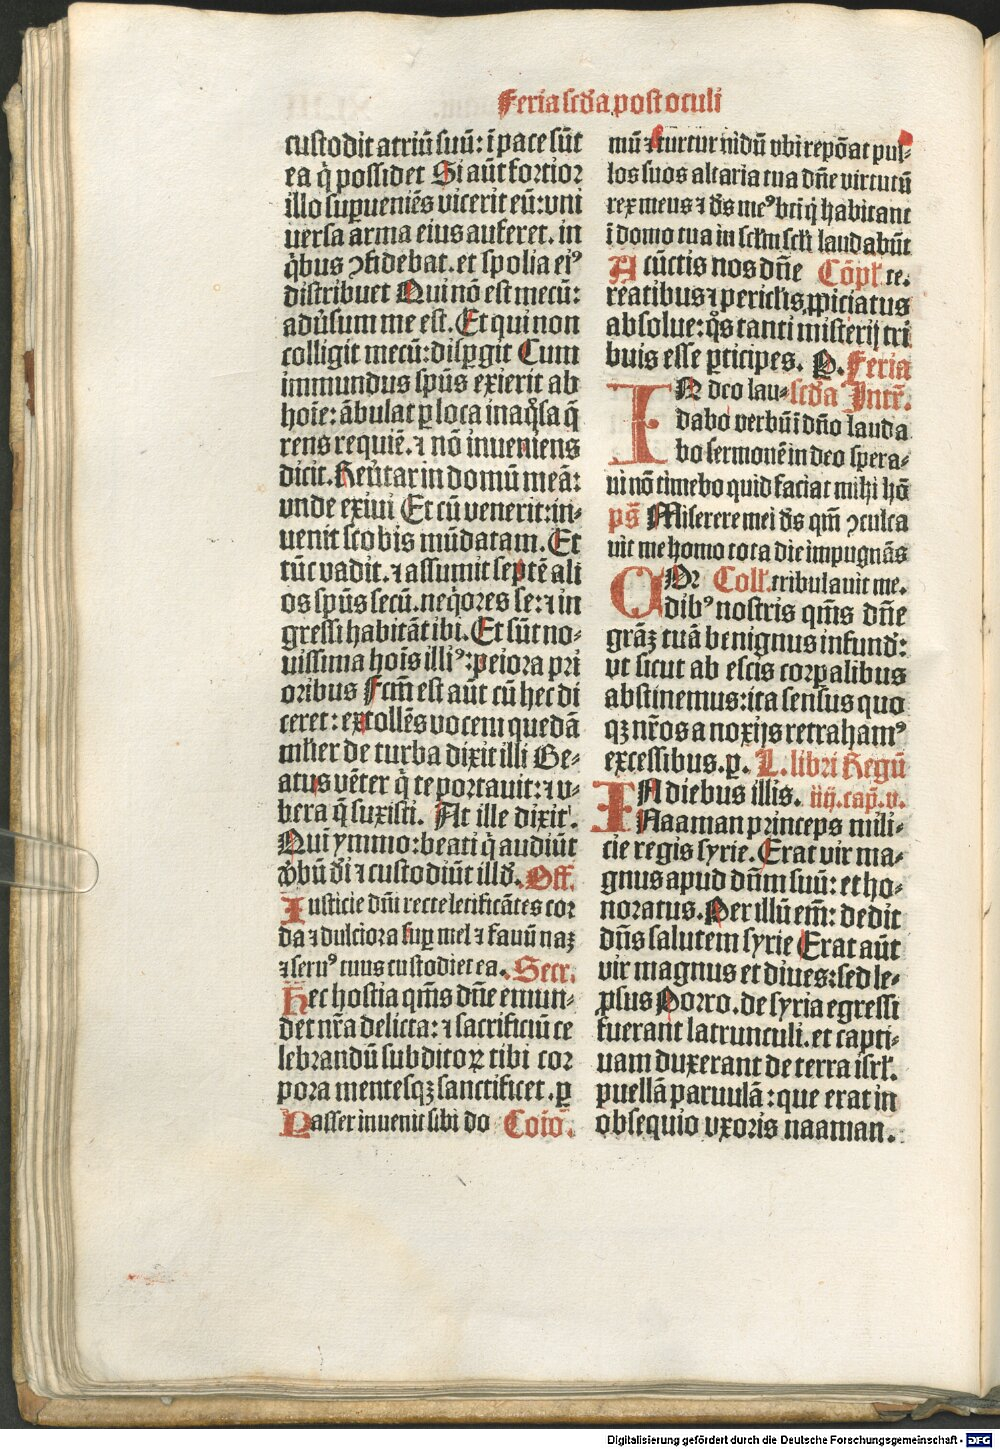 Feria scd̄a post oculi
custodit atriū suū: ī pace sūt
ea q̄ possidet Si aūt fortior
illo suꝑueniēs vicerit eū: vni
uersa arma eius auferet. in
q̄bus ꝯfidebat. et spolia eiꝰ
distribuet Qui nō est mecū:
aduͤsum me est. Et qui non
colligit mecū: disꝑgit Cum
immundus spūs exierit ab
hoīe: ābulat ꝑ loca inaq̄sa q̄
rens requiē. ⁊ nō inueniens
dicit. Reūtar in domū meā:
vnde exiui Et cū venerit: in-
uenit scobis mūdatam. Et
tūc vadit. ⁊ assumit septē ali
os spūs secū. neq̄ores se: ⁊ in
gressi habitāt ibi. Et sūt no-
uissima hoīs illiꝰ: peiora pri
oribus Fcm̄ est aūt cū hec di
ceret: extollēs vocem quedā
mlier de turba dixit illi Be-
atus vēter q̄ te portauit: ⁊ v-
bera q̄ suxisti. At ille dixit.
Quīymmo: beati q̄ audiūt
v̄bū dī ⁊ custodiūt illd̄. Off.
Iusticie dn̄i recte letificātes cor
da ⁊ dulciora suꝑ mel ⁊ fauū naꝫ
⁊ seruꝰ tuus custodiet ea. Secr.
Hec hostia qm̄s dn̄e emun-
det nr̄a delicta: ⁊ sacrificiū ce
lebrandū subditoꝝ tibi cor
pora mentesqꝫ sanctificet. ꝑ
Passer inuenit sibi do Cōiō.
mū ⁊ turtur nidū vbi repōat pul-
los suos altaria tua dn̄e virtutū
rex meus ⁊ ds̄ meꝰ bti q̄ habitant
ī domo tua in sclm̄ scli laudabūt
A cūctis nos dn̄e Cōpl. re.
reatibus ⁊ periclis, ꝓpiciatus
absolue: q̄s tanti misterij tri
buis esse ꝑticipes. P. Feria
IN deo lau- scd̄a Intr̄.
dabo verbū ī dn̄o lauda
bo sermonē in deo spera-
ui nō timebo quid faciat mihi hō
ps̄ Miserere mei ds̄ qm̄ ꝯculca
uit me homo tota die impugnās
COr Coll. tribulauit me.
dibꝰ nostris qm̄s dn̄e
grāꝫ tuā benignus infund̄:
vt sicut ab escis corꝑalibus
abstinemus: ita sensus quo
qꝫ nr̄os a noxijs retrahamꝰ
excessibus. ꝑ. L. libri Regū
IN diebus illis. iiij. cap̄. v.
Naaman princeps mili-
cie regis syrie. Erat vir ma-
gnus apud dn̄m suū: et ho-
noratus. Per illū em̄: dedit
dn̄s salutem syrie Erat aūt
vir magnus et diues: sed le-
ꝓsus Porro. de syria egressi
fuerant latrunculi. et capti-
uam duxerant de terra isrl̄.
puellā paruulā: que erat in
obsequio vxoris naaman.
Digitalisierung gefördert durch die Deutsche Forschungsgemeinschaft - DFG